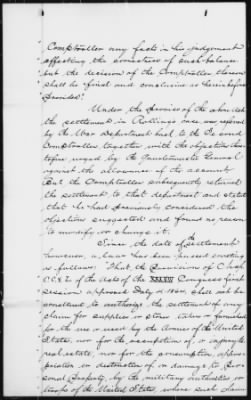 Comptroller any facts in his judgement
affecting the correctness of such balance
but the decision of the Comptroller thereon
shall be final and conclusive as hereinbefore
provided."
Under the proviso of the above act
the settlement in Rollings case was referred
by the War Department back to the 2d
Comptroller together with the objections here-
tofore urged by the Quartermaster General
against the allowance of the account
But the Comptroller subsequently returned
the settlement to that department and stated
that he had previously considered the
objections suggested and found no reason
to modify or change it.
Since the date of settlement
however, a law has been passed reading
as follows: That the provisions of Chap
of the acts of the Congress first
session approved July 4, 1864, shall not be
construed to authorize the settlement of any
claim for supplies or stores taken or furnished
for the use or used by the Armies of the United
States, nor for the occupation of, or injury to
real estate, nor for the consumption, appro-
priation or destruction of, or damage to per-
sonal property, by the military authorities or
troops of the United States, where such claim